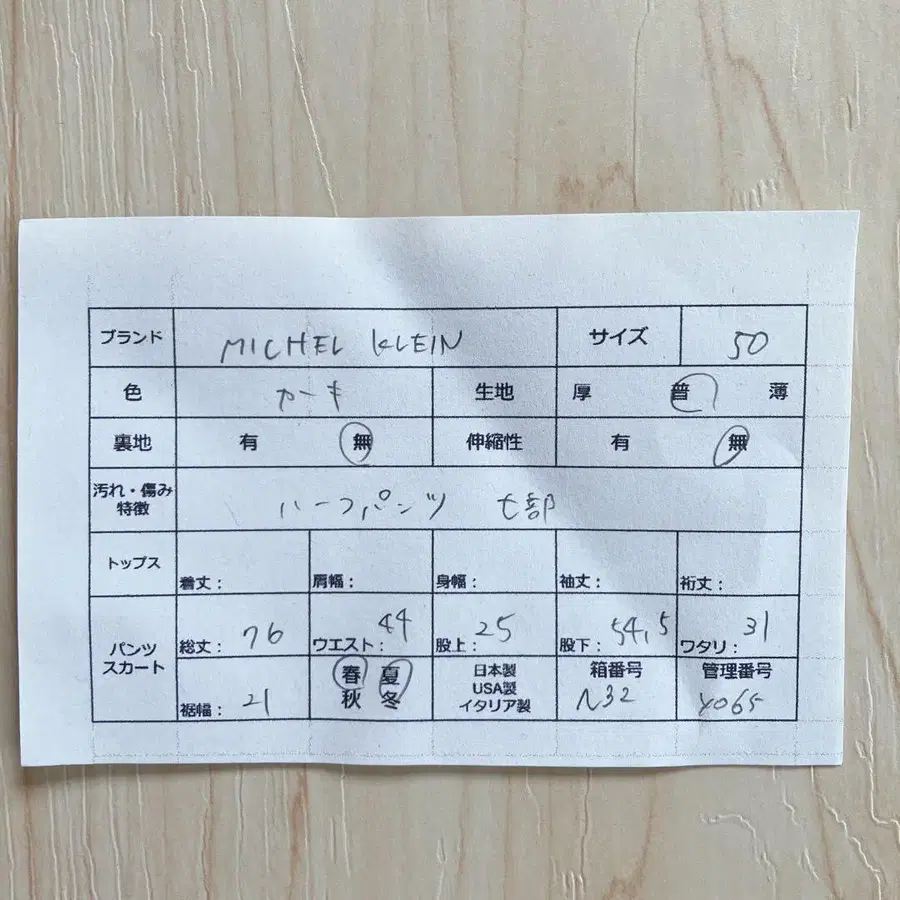 ブランド MICHEL KLEIN サイズ 50
色 カーキ 生地 厚 普 薄
裏地 有 無 伸縮性 有 無
汚れ・傷み
特徴 ハーフパンツ 七部
トップス 着丈： 肩幅： 身幅： 袖丈： 裄丈：
パンツ
スカート 総丈： 76 ウエスト： 44 股上： 25 股下： 54,5 ワタリ： 31
裾幅： 21
春 夏
秋 冬
日本製
USA製
イタリア製
箱番号
N32
管理番号
Y065